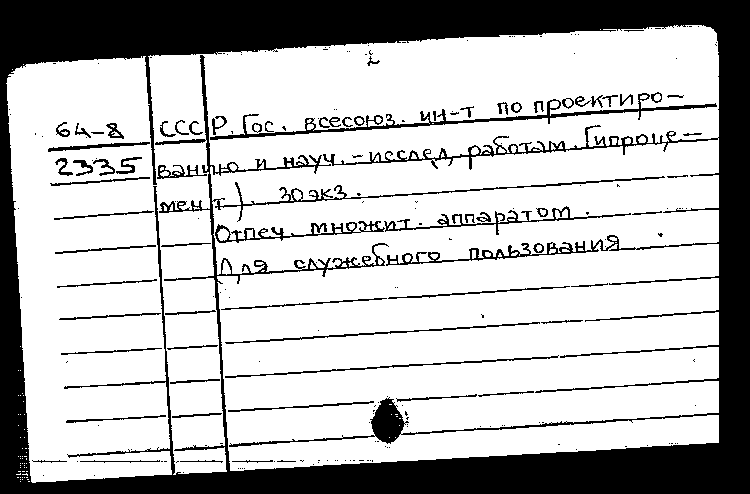 2
64-8 СССР. Гос. всесоюз. ин-т по проектиро-
2335 ванию и науч.-исслед. работам. Гипроце-
мент). 30 экз.
Отпеч. множит. аппаратом.
Для служебного пользования.